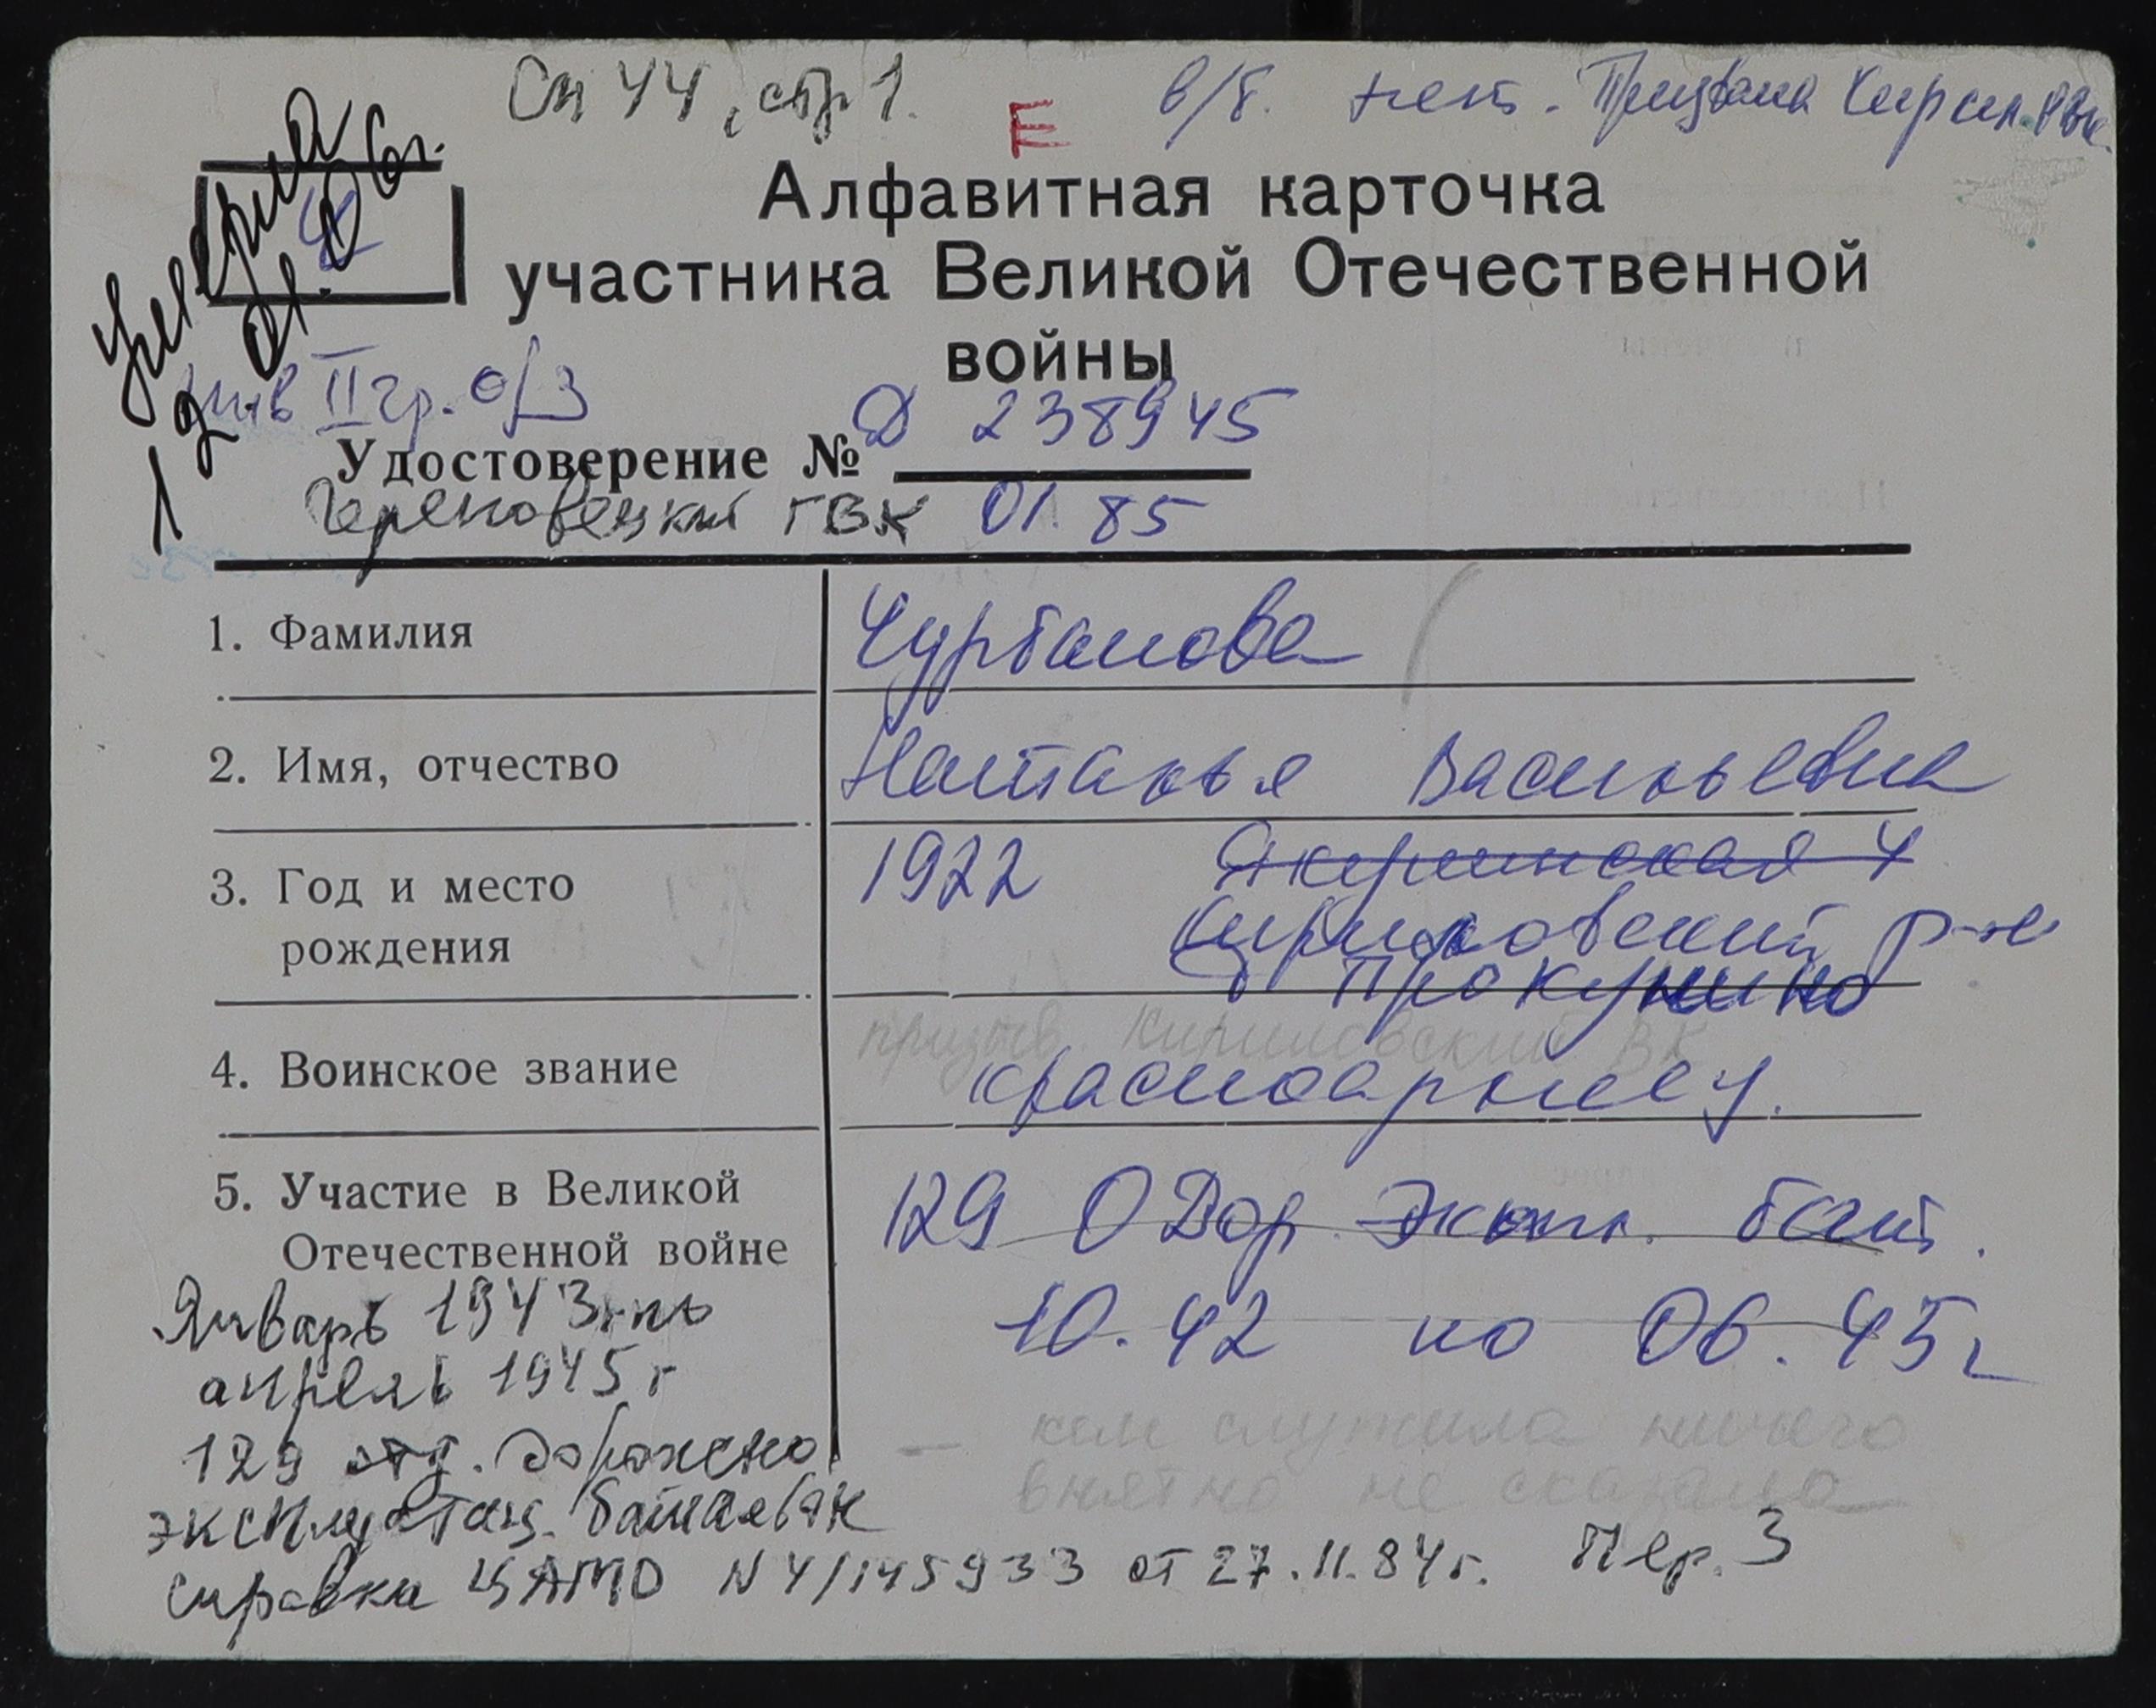 Сп 44, стр 1.
Е
в/б. нет. Призвана Кирил. РВК.
умерла
12.01.06г.
Алфавитная карточка
участника Великой Отечественной
войны
инв II гр. о/з
Удостоверение № Д 238945
Череповецкий ГВК 01.85
1. Фамилия Чурбанова
2. Имя, отчество Наталья Васильевна
3. Год и место рождения 1922
Кирилловский р-н
Прокунино
призыв. Кирилловский ВК
4. Воинское звание красноармеец.
5. Участие в Великой Отечественной войне
129 О Дор. Эксп. бат.
10.42 по 06.45г
Январь 1943г по
апрель 1945г
129 отд. дорожно
эксплуатац. батальон
— кем служила ничего
внятно не сказала
справка ЦАМО N 4/145933 от 27.11.84г. Пер. 3